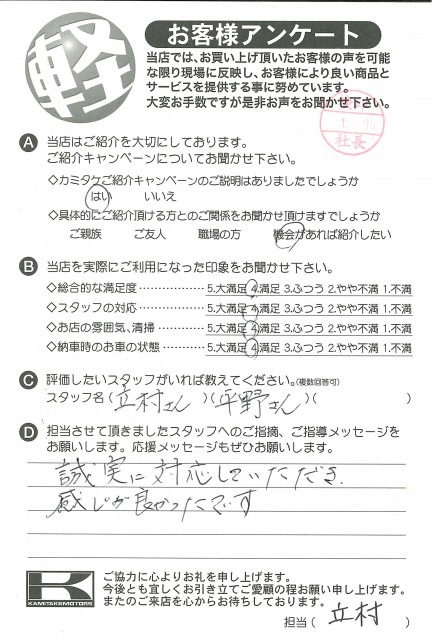 軽
お客様アンケート
当店では、お買い上げ頂いたお客様の声を可能
な限り現場に反映し、お客様により良い商品と
サービスを提供する事に努めています。
大変お手数ですが是非お声をお聞かせ下さい。
社長
A 当店はご紹介を大切にしております。
ご紹介キャンペーンについてお聞かせ下さい。
◇カミタケご紹介キャンペーンのご説明はありましたでしょうか
はい いいえ
◇具体的にご紹介頂ける方とのご関係をお聞かせ頂けますでしょうか
ご親族 ご友人 職場の方 機会があれば紹介したい
B 当店を実際にご利用になった印象をお聞かせ下さい。
◇総合的な満足度 ………… 5.大満足 4.満足 3.ふつう 2.やや不満 1.不満
◇スタッフの対応 ………… 5.大満足 4.満足 3.ふつう 2.やや不満 1.不満
◇お店の雰囲気、清掃 ……… 5.大満足 4.満足 3.ふつう 2.やや不満 1.不満
◇納車時のお車の状態 ……… 5.大満足 4.満足 3.ふつう 2.やや不満 1.不満
C 評価したいスタッフがいれば教えてください。(複数回答可)
スタッフ名(立村さん)(平野さん)( )
D 担当させて頂きましたスタッフへのご指摘、ご指導メッセージを
お願いします。応援メッセージもぜひお願いします。
誠実に対応していただき、
感じが良かったです
K
KAMITAKEMOTORS
ご協力に心よりお礼を申し上げます。
今後とも宜しくお引き立てご愛顧の程お願い申し上げます。
またのご来店を心からお待ちしております。
担当(立村)